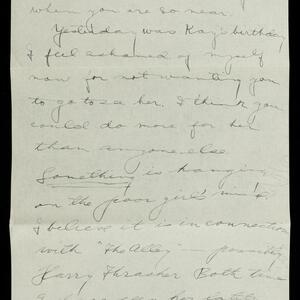 when you are so near.
Yesterday was Kay's birthday
I feel ashamed of myself
now for not wanting you
to go to see her. I think you
could do more for her
than anyone else
Something is hanging
on the poor girl's mind.
I believe it is in connection
with "The Alley" — possibly
Harry Thrasher Both times